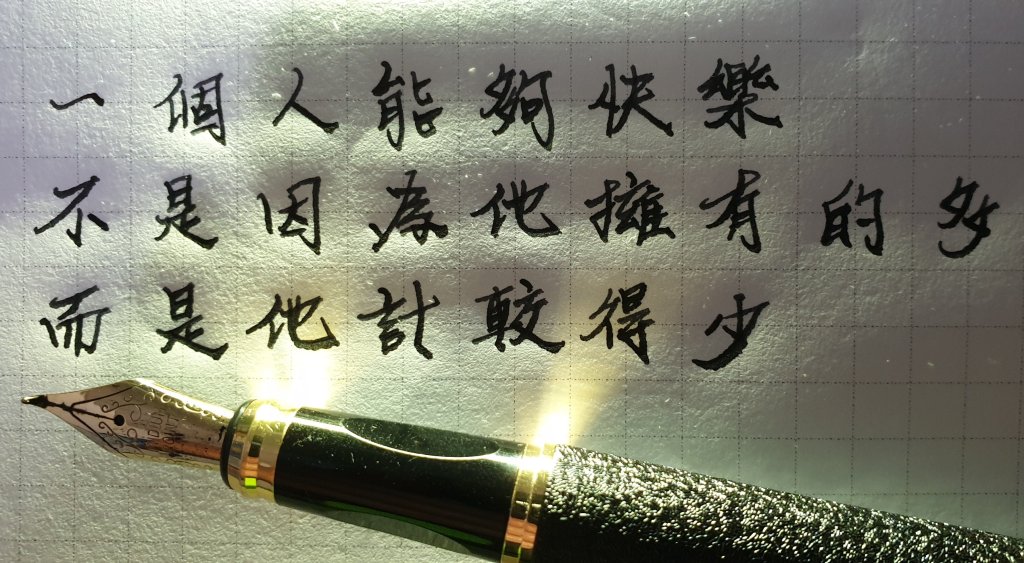 一個人能夠快樂
不是因為他擁有的多
而是他計較得少